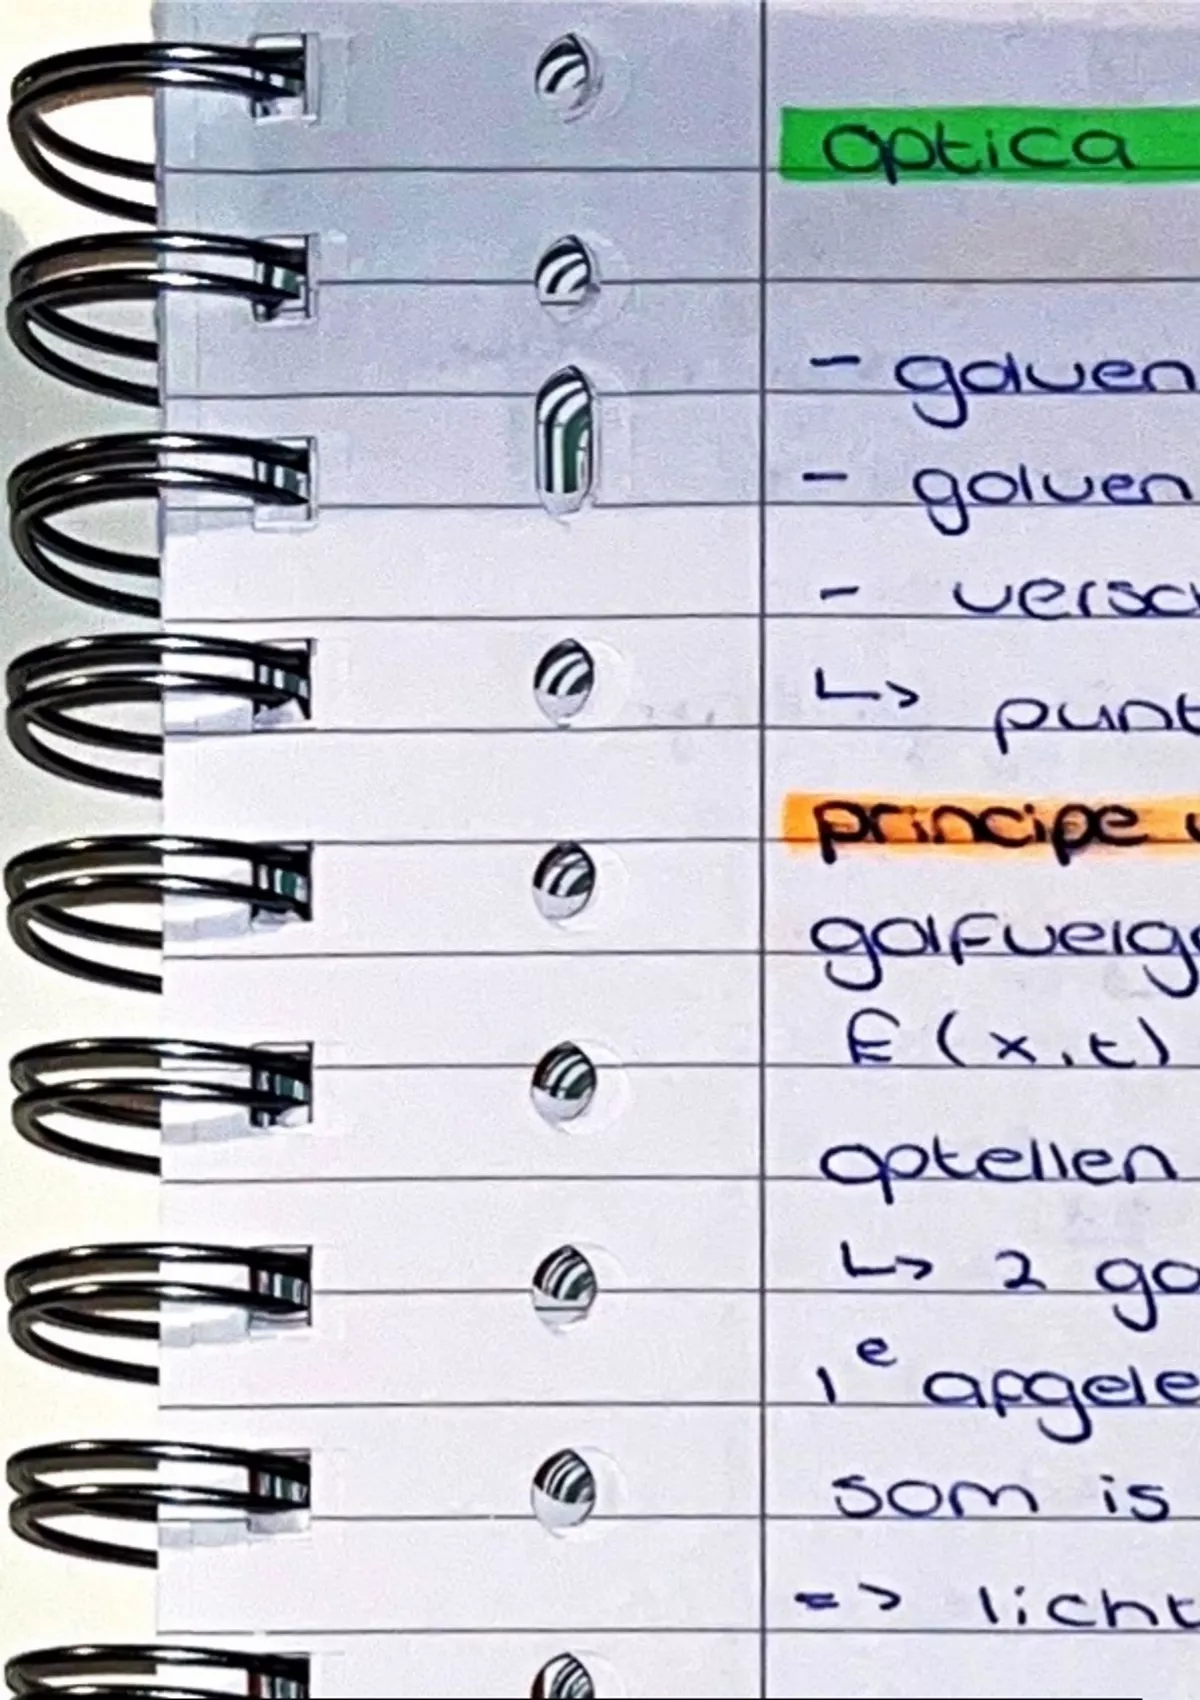 optica
- golven
- golven
- versch
↳ punt
principe v
golfvelg
E(x,t)
optellen
↳ 2 go
1e afgele
som is
=> licht